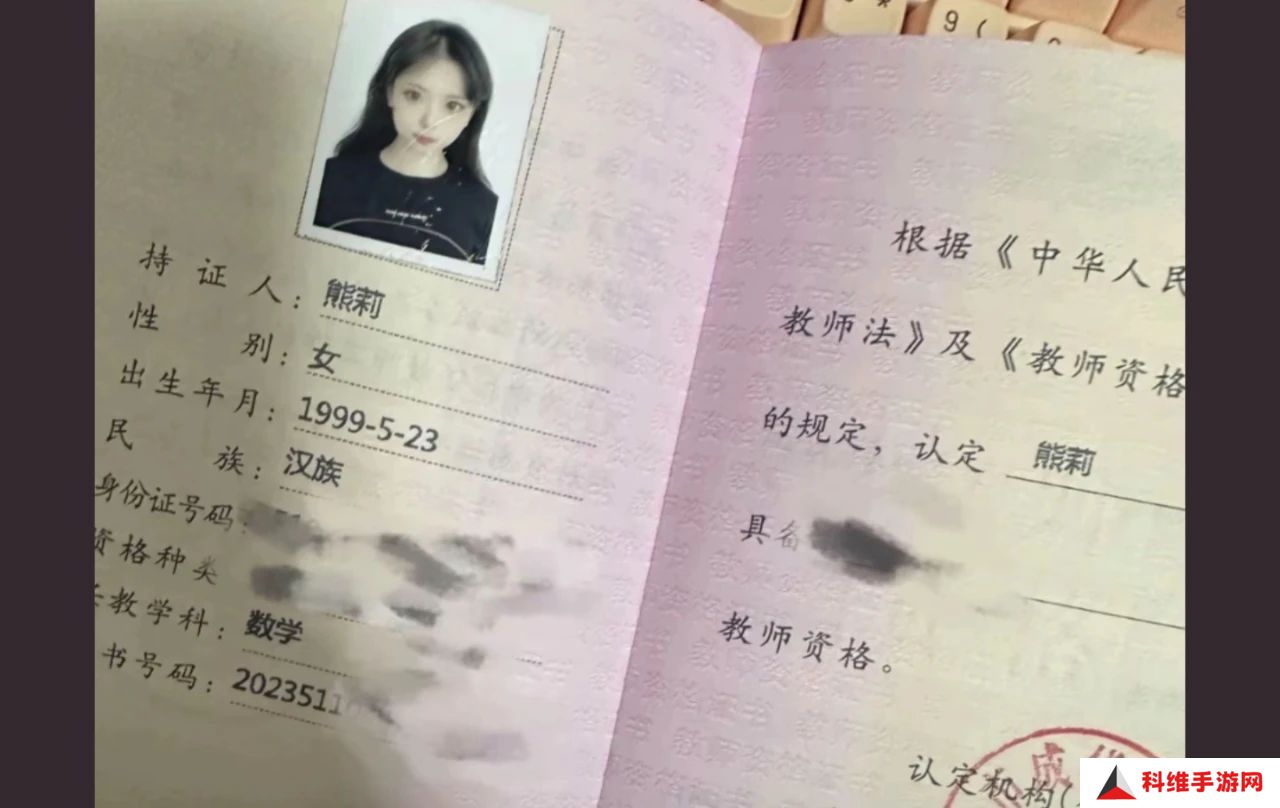 持证人：熊莉
性别：女
出生年月：1999-5-23
民族：汉族
身份证号码：
资格种类
教学科：数学
书号码：2023511
9(
根据《中华人民
教师法》及《教师资格
的规定，认定 熊莉
具备
教师资格。
认定机构(
科维手游网